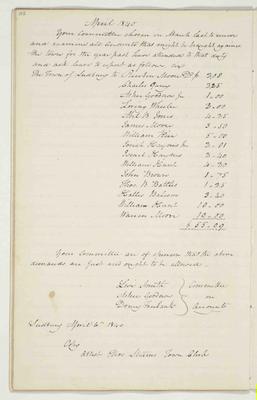 April 1840
Your Committee chosen in March last to receive
and examine all Accounts that might be brought against
the town for the year past have attended to that duty
and ask leave to report as follows viz
The Town of Sudbury to Reuben Moore Dr $ 3.08
Charles Gerry 3.25
Asher Goodnow Jr 1.00
Loring Wheeler 2.00
Abel B. Jones 4.25
James Moore 3.50
William Rice 5.00
Josiah Haynes Jr 2.01
Israel Haynes 3.40
William Hunt 4.20
John Brown 1.75
Thos. B. Battles 1.25
William Hunt 10.00
Warren Moore 12.00
Your Committee are of opinion that the above
demands are just and ought to be allowed
Levi Smith Committee
Asher Goodnow on
Accounts
Sudbury April 6th 1840
Attest Town Clerk